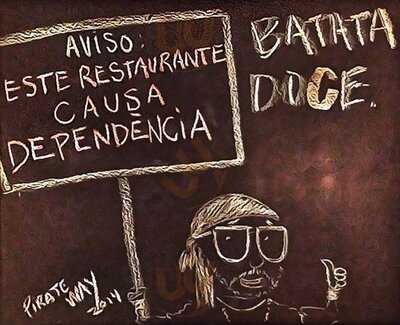 AVISO:
ESTE RESTAURANTE
CAUSA
DEPENDÊNCIA
BATATA
DOCE.
PIRATE
WAY
2014